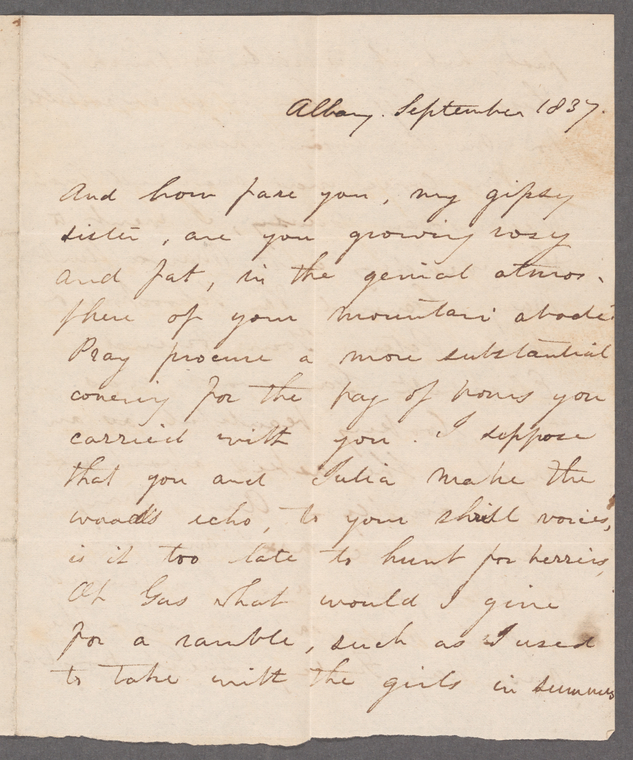 Albany. September 1837.
And how fare you, my gipsy
sister, are you growing rosy
and fat, in the genial atmos-
phere of your mountain abode
Pray procure a more substantial
covering for the bag of bones you
carried with you. I suppose
that you and Julia make the
woods echo, to your shrill voices,
is it too late to hunt for berries,
Oh Gas what would I give
for a ramble, such as I used
to take with the girls in summer